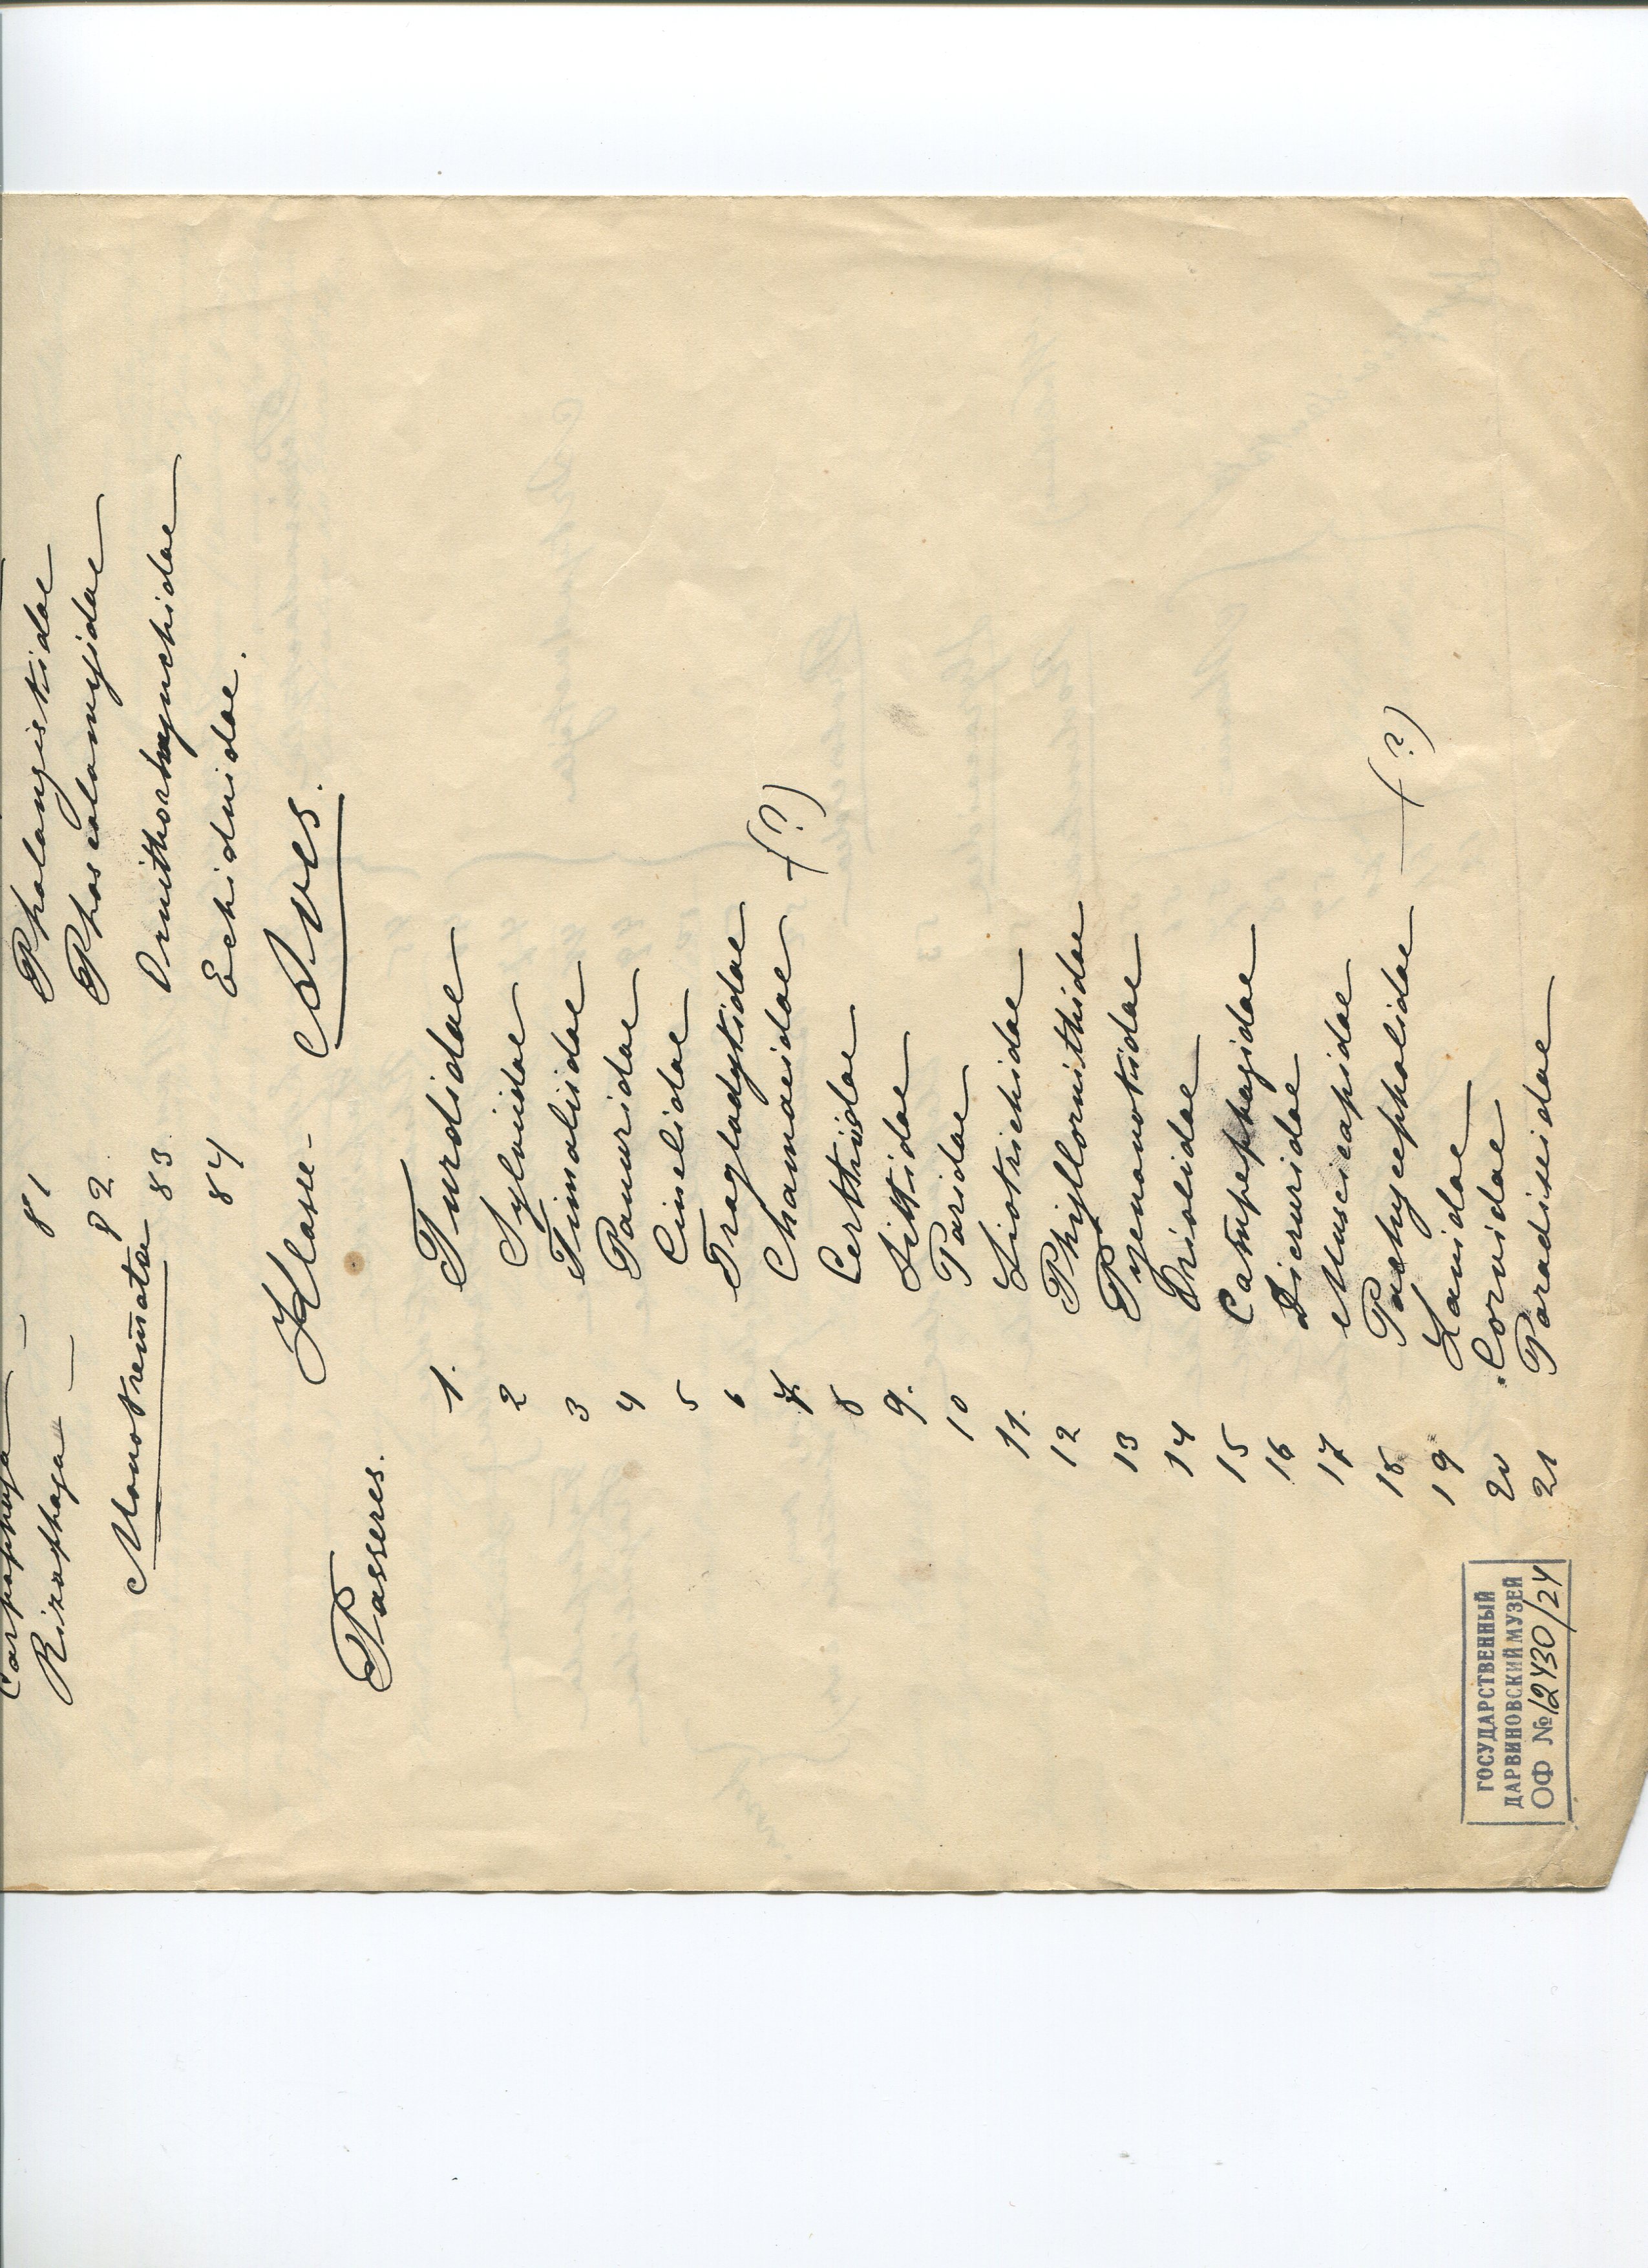 Carpophaga — 81 Phalangistidae
Rizophaga — 82 Phascolomyidae
Monotremata 83. Ornithorhynchidae
84 Echidnidae.
Klasse - Aves.
Passeres.
1. Turdidae
2 Sylviidae
3 Timaliidae
4 Panuridae
5 Cinclidae
6 Troglodytidae
7. Chamaeidae (?)
8 Certhiidae
9. Sittidae
10 Paridae
11. Liotrichidae
12 Phyllornithidae
13 Pycnonotidae
14 Oriolidae
15 Campephagidae
16 Dicruridae
17 Muscicapidae
18. Pachycephalidae — (?)
19 Laniidae
20 Corvidae
21 Paradiseidae
ГОСУДАРСТВЕННЫЙ
ДАРВИНОВСКИЙ МУЗЕЙ
ОФ № 12430/24